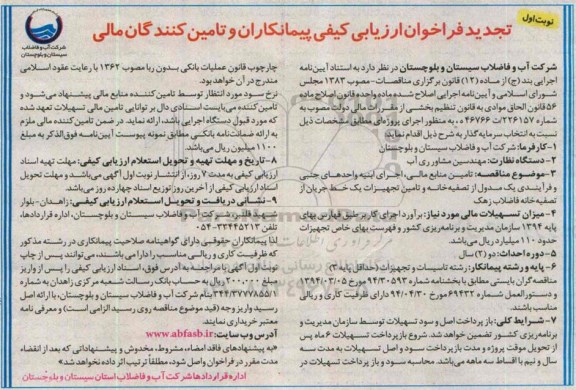 نوبت اول
تجدید فراخوان ارزیابی کیفی پیمانکاران و تامین کنندگان مالی
شرکت آب و فاضلاب
سیستان و بلوچستان
شرکت آب و فاضلاب سیستان و بلوچستان در نظر دارد به استناد آیین‌نامه
اجرایی بند (ج) از ماده (۱۲) قانون برگزاری مناقصات-مصوب ۱۳۸۳ مجلس
شورای اسلامی و آیین‌نامه اجرایی اصلاح شده ماده واحده قانون اصلاح ماده
۵۶ قانون الحاق موادی به قانون تنظیم بخشی از مقررات مالی دولت مصوب به
شماره ۲۲۶۱۵۷/ت ۴۶۷۶۶ ه، به منظور اجرای پروژه‌ای مطابق مشخصات ذیل
نسبت به انتخاب سرمایه‌گذار به شرح ذیل اقدام نماید:
۱-کارفرما: شرکت آب و فاضلاب سیستان و بلوچستان
۲-دستگاه نظارت: مهندسین مشاور ری آب
۳-موضوع مناقصه: تامین منابع مالی، اجرای ابنیه واحدهای جنبی
و فرآیندی یک مدول از تصفیه‌خانه و تامین تجهیزات یک خط جریان از
تصفیه خانه فاضلاب زهک
۴- میزان تسهیلات مالی مورد نیاز: برآورد اجرای کار بر طبق فهارس بهای
پایه ۱۳۹۴ سازمان مدیریت و برنامه‌ریزی کشور و فهرست بهای خاص تجهیزات
حدود ۱۱۰ میلیارد ریال می‌باشد.
۵-دوره احداث: دو (۲) سال
۶- پایه و رشته پیمانکار: رشته تاسیسات و تجهیزات (حداقل پایه ۳)
مناقصه گران بایستی مطابق با بخشنامه ۹۴/۳۰۵۹۳ مورخ ۱۳۹۴/۰۳/۰۵
و دستورالعمل شماره ۶۹۴۳۲ مورخ ۹۴/۰۴/۳۰ دارای ظرفیت کاری و ریالی
مناسب باشند.
۷- شرایط کلی: باز پرداخت اصل و سود تسهیلات توسط سازمان مدیریت و
برنامه‌ریزی کشور تضمین خواهد شد. شروع بازپرداخت تسهیلات ۶ ماه پس
از تحویل موقت پروژه و مدت بازپرداخت سود و اصل تسهیلات به مدت سه
سال و نیم با اقساط سه ماهه می‌باشد. محاسبه سود و باز پرداخت تسهیلات در
چارچوب قانون عملیات بانکی بدون ربا مصوب ۱۳۶۲ با رعایت عقود اسلامی
مندرج در آن خواهد بود.
نرخ سود مورد انتظار توسط تامین کننده منابع مالی پیشنهاد می‌شود و
تامین کننده می‌بایست اسنادی دال بر توانایی تامین مالی تسهیلات تعهد شده
که مورد قبول دستگاه اجرایی باشد، ارائه نماید. در ضمن تامین کننده مالی ملزم
به ارائه ضمانت‌نامه بانکی مطابق نمونه پیوست آیین‌نامه فوق‌الذکر به مبلغ
۱۱۰۰ میلیون ریال می‌باشد.
۸-تاریخ و مهلت تهیه و تحویل استعلام ارزیابی کیفی: مهلت تهیه اسناد
ارزیابی کیفی به مدت ۷ روز، از انتشار نوبت اول آگهی می‌باشد و مهلت تحویل
اسناد ارزیابی کیفی از آخرین روز توزیع اسناد چهارده روز می‌باشد.
۹- نشانی دریافت و تحویل استعلام ارزیابی کیفی: زاهدان-بلوار
شرکت آب و فاضلاب سیستان و بلوچستان، اداره قراردادها،
تلفن ۳۳۴۴۵۲۱۳-۰۵۴
لذا پیمانکاران حقوقی دارای گواهینامه صلاحیت پیمانکاری در رشته مذکور
که ظرفیت کاری و ریالی مناسب را دارا می‌باشند، می‌توانند پس از چاپ
نوبت اول آگهی با مراجعه به آدرس فوق، اسناد ارزیابی کیفی را پس از واریز
مبلغ ۲۰۰.۰۰۰ ریال به حساب بانک رسالت شعبه مرکزی زاهدان به شماره
۳۴۴/۳۷۷۷۸۵۵/۱ بنام شرکت آب و فاضلاب سیستان و بلوچستان، با ارائه اصل
رسید واریز وجه (قید موضوع مناقصه روی رسید الزامی است) و معرفی نامه
معتبر خریداری نمایند.
آدرس وب سایت: www.abfasb.ir
«به پیشنهادهای فاقد امضاء، مشروط، مخدوش و پیشنهاداتی که بعد از انقضاء
مدت مقرر در فراخوان واصل شود، مطلقاً ترتیب اثر داده نخواهد شد.»
اداره قراردادها شرکت آب و فاضلاب استان سیستان و بلوچستان